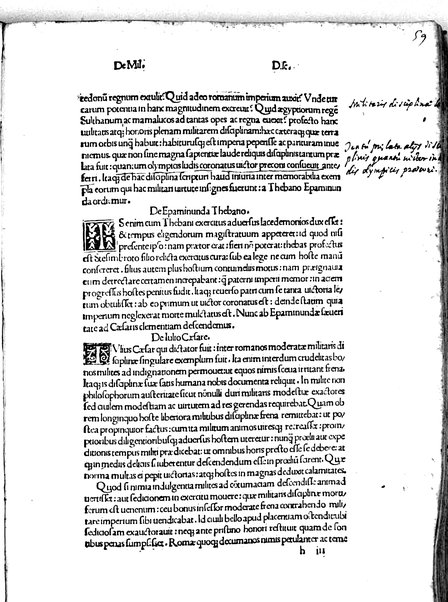 59
De Mil. D.f.
cedonū regnum extulit? Quid adeo romanum imperium auxit? Vnde tur
carum potentia in hanc magnitudinem excreuit? Quid ægyptiorum regē
Sulthanum ac mamalucos ad tantas opes ac regna euexit? profecto hanc
utilitatis atq; honoris plenam militarem disciplinam: hac cæteraq; quæ terra
rum orbis unq̄ habuit: habiturusq; est imperia peperisse ac parituram inue
niemus. quæ non sine magna sapientiæ laude reliquis disciplinis tantum præ
stat: quantum olympiis ludis coronatus uictor præconi consueuit antefe
rri. Itaq; de hac disciplina scripturi haud iniuria inter memorabilia exem
pla eorum qui hac militari uirtute insignes fuerunt: a Thebano Epaminun
da ordimur.
De Epaminunda Thebano.
IS enim cum Thebani exercitus aduersus lacedemonios dux esset:
& tempus eligendorum magistratuum appeteret: id quod nisi
præsente ipso: nam prætor erat: fieri nō poterat: thebas profectus
est Stesimbroto filio relicta exercitus cura: sub ea lege ne cum hoste manū
consereret. filius autem plus hostium contumeliis motus: nam præ ignauia
eum detrectare certamen increpabant: q̄ paterni imperii memor: in aciem
progressus hostes penitus fudit. Itaq; reuerso patri cum se tanta uictoria læ
tum obtulisset: ab eo primum ut uictor coronatus est: deinde tanquam qui
imperium neglexerat morte mulctatus est. Nunc ab Epaminundæ sæueri
tate ad Cæsaris clementiam descendemus.
De Iulio Cæsare.
IVlius Cæsar qui dictator fuit: inter romanos moderatæ militaris di
sciplinæ singulare exemplum fuit. Ita enim interdum crudelitas bo
nos milites ad indignationem permouet: ut equos nimis sæua irritant frena.
Itaq; is disciplinæ suæ satis humana nobis documenta reliquit. In milite non
philosophorum austeritatē sicut nōnulli duri militaris modestiæ exactores
sed ciuilem modestiam ac uirtutem ad res gerendas requirebat. Quam ob
rem longinquo hoste liberiora militibus disciplinæ frena remittebat: ut po
stea propinquior factus: cum ita militum animos uiresq; recreasset: prom
ptioribus diligentioribusq; aduersus hostem uteretur: nunq̄ prælii aut expe
ditionis tempus militi prædixit: ut omnibus horis præsto esse se debere: at
q; in medias deliciis iuberentur descendendum esse in præliū scirent. Quæ
norma multas ei peperit uictorias: atq; hostes in magnas deduxit calamitates.
Quod si nimia indulgentia milites ad cōtumaciam descendisse animad
uertisset: aut seditionem in exercitu mouere: quæ militaris disciplinæ mors
ferum est uenenum: ceu bonus insessor moderate frena contrahendo mili
tare imperium sibi uendicabat. Id ciuili bello apud placentiam ostendit: ubi
seditiosam exauctorauit: neq; ante pristino honori restituit quam de son
tibus pœnas sumpsisset. Romæ quoq; decumanos nimis petulanter ac teme
h iii